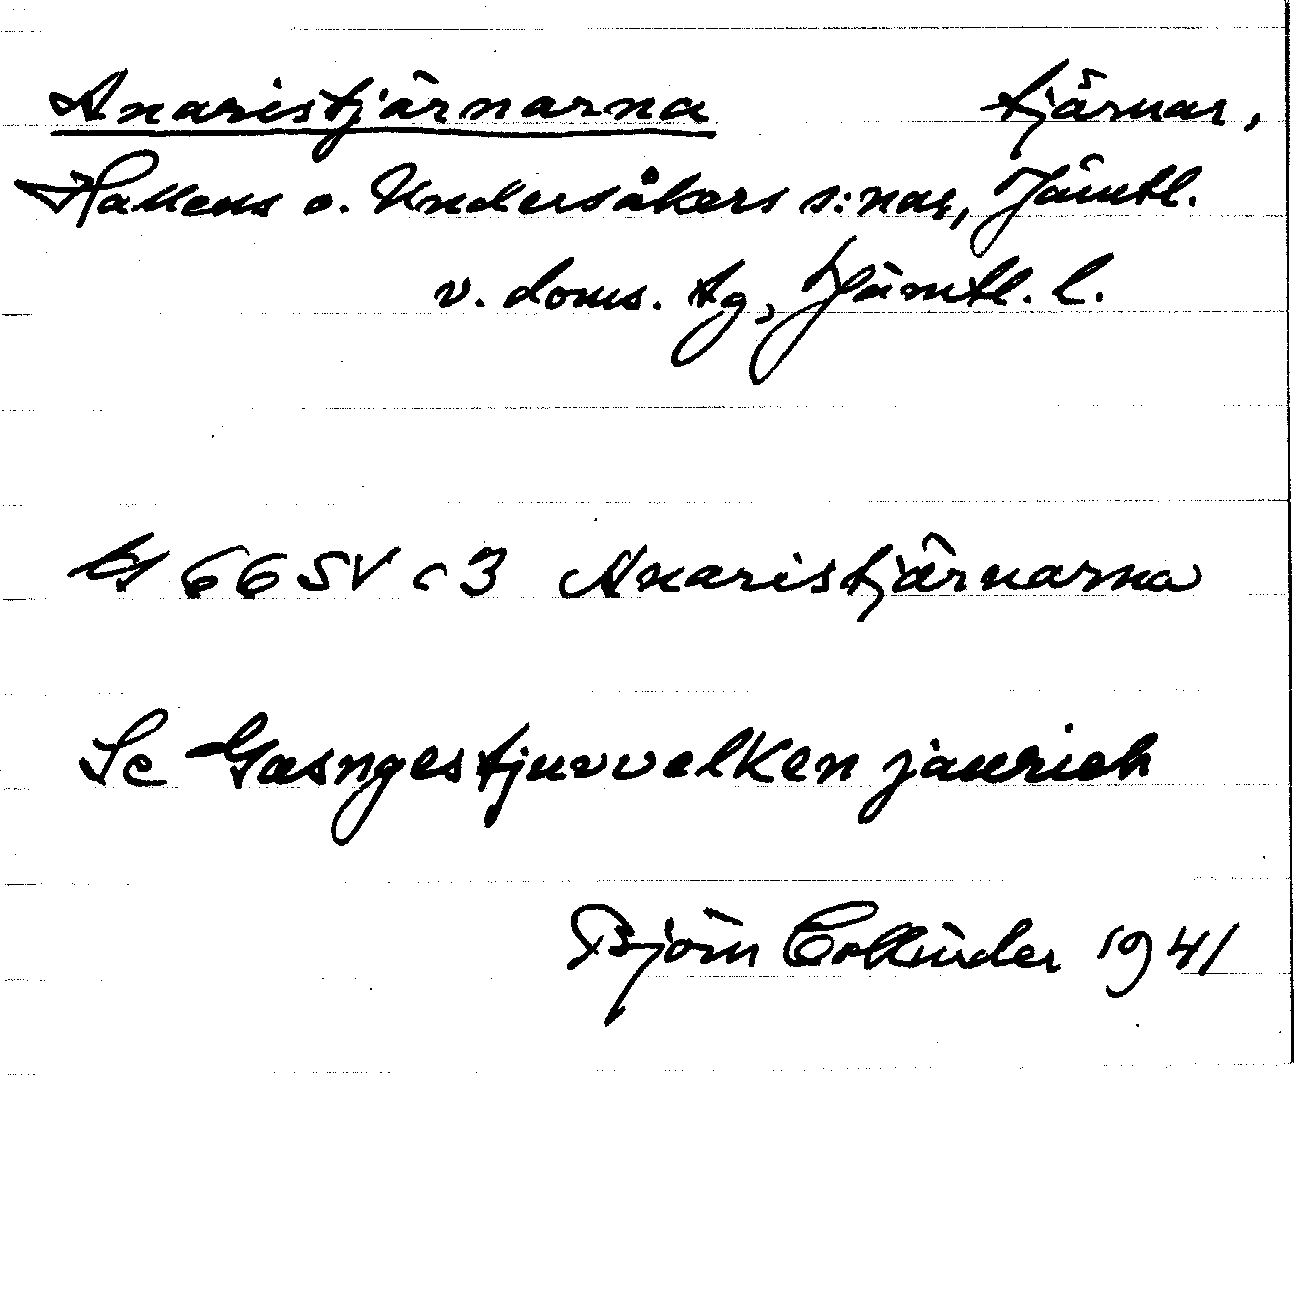 Anaristjärnarna tjärnar,
Hallens o. Undersåkers s:nar, Jämtl.
v. doms. tg, Jämtl. l.
66 SV c 3 Anaristjärnarna
Se Gasngestjuvvelken jaurieh
Björn Collinder 1941